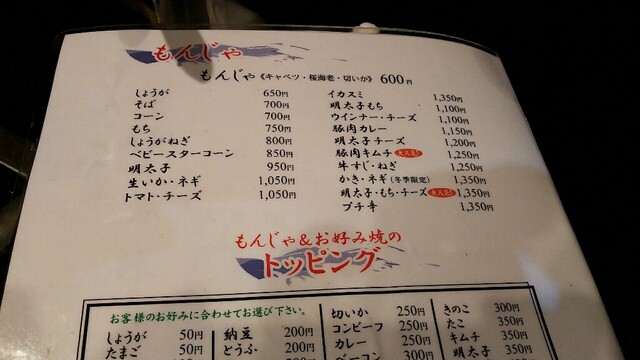 もんじゃ
もんじゃ《キャベツ・桜海老・切いか》 600円
しょうが 650円
そば 700円
コーン 700円
もち 750円
しょうがねぎ 800円
ベビースターコーン 850円
明太子 950円
生いか・ネギ 1,050円
トマト・チーズ 1,050円
イカスミ 1,350円
明太子もち 1,100円
ウインナー・チーズ 1,100円
豚肉カレー 1,150円
明太子チーズ 1,200円
豚肉キムチ 大人気! 1,250円
牛すじ・ねぎ 1,250円
かき・ネギ(冬季限定) 1,350円
明太子・もち・チーズ 大人気! 1,350円
プチ辛 1,350円
もんじゃ&お好み焼の
トッピング
お客様のお好みに合わせてお選び下さい。
しょうが 50円
たまご 50円
納豆 200円
とうふ 200円
切いか 250円
コンビーフ 250円
カレー 250円
ベーコン 300円
きのこ 300円
たこ 350円
キムチ 350円
明太子 350円